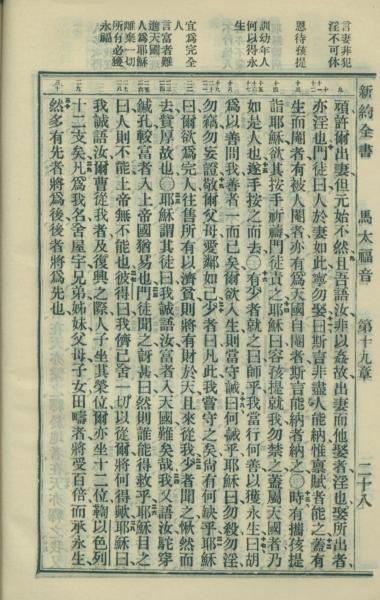 新約全書 馬太福音 第十九章 二十八
言妻非犯
淫不可休
恩待孩提
訓幼年人
何以得永
生
宜為完全
人
言富者難
進天國
人為耶穌
離棄一切
所有必獲
永福
頑許爾出妻但元始不然且吾語汝非以姦故出妻而他娶者淫也娶所出者
亦淫也門徒曰人於妻如此寧勿娶曰斯言非盡人能納惟稟賦者能之蓋有
生而閹者有被人閹者亦有為天國自閹者斯言能納者納之〇時有攜孩提
詣耶穌欲其按手祈禱門徒責之耶穌曰容孩提就我勿禁之蓋屬天國者乃
如是人也遂手按之而去〇有少者就之曰師乎我當行何善以獲永生曰胡
為以善問我善者一而已矣爾欲入生則當守誡曰何誡乎耶穌曰勿殺勿淫
勿竊勿妄證敬爾父母愛鄰如己少者曰凡此我嘗守之矣尚有何缺乎耶穌
曰爾欲為完人往售所有以濟貧則將有財於天且來從我少者聞之愀然而
去貲厚故也〇耶穌謂其徒曰我誠語汝富者入天國難矣哉我又語汝駝穿
鍼孔較富者入上帝國猶易也門徒聞之訝甚曰然則誰能得救乎耶穌目之
曰人則不能上帝無不能也彼得曰我儕已舍一切以從爾將何得歟耶穌曰
我誠語汝爾曹從我者及復興之際人子坐其榮位爾亦坐十二位鞫以色列
十二支矣凡為我名舍屋宇兄弟姊妹父母子女田疇者將受百倍而承永生
然多有先者將為後後者將為先也